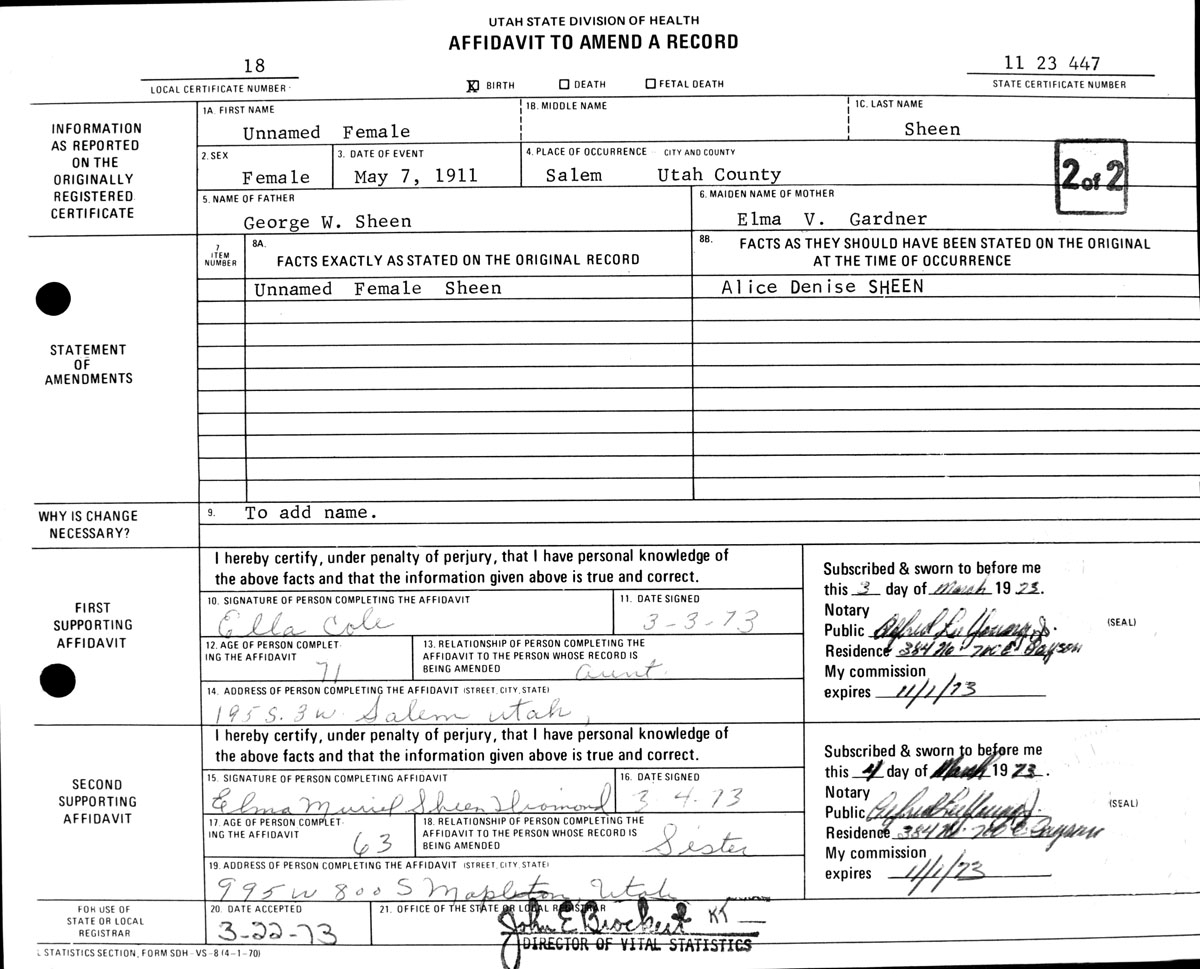 UTAH STATE DIVISION OF HEALTH
AFFIDAVIT TO AMEND A RECORD
18
LOCAL CERTIFICATE NUMBER
X BIRTH DEATH FETAL DEATH
11 23 447
STATE CERTIFICATE NUMBER
INFORMATION
AS REPORTED
ON THE
ORIGINALLY
REGISTERED
CERTIFICATE
1A. FIRST NAME 1B. MIDDLE NAME 1C. LAST NAME
Unnamed Female Sheen
2. SEX 3. DATE OF EVENT 4. PLACE OF OCCURRENCE - CITY AND COUNTY
Female May 7, 1911 Salem Utah County
2 of 2
5. NAME OF FATHER 6. MAIDEN NAME OF MOTHER
George W. Sheen Elma V. Gardner
STATEMENT
OF
AMENDMENTS
7
ITEM
NUMBER
8A.
FACTS EXACTLY AS STATED ON THE ORIGINAL RECORD
8B. FACTS AS THEY SHOULD HAVE BEEN STATED ON THE ORIGINAL
AT THE TIME OF OCCURRENCE
Unnamed Female Sheen Alice Denise SHEEN
WHY IS CHANGE
NECESSARY?
9. To add name.
FIRST
SUPPORTING
AFFIDAVIT
I hereby certify, under penalty of perjury, that I have personal knowledge of
the above facts and that the information given above is true and correct.
10. SIGNATURE OF PERSON COMPLETING THE AFFIDAVIT 11. DATE SIGNED
Ella Cole 3-3-73
12. AGE OF PERSON COMPLET-
ING THE AFFIDAVIT
71
13. RELATIONSHIP OF PERSON COMPLETING THE
AFFIDAVIT TO THE PERSON WHOSE RECORD IS
BEING AMENDED
aunt.
14. ADDRESS OF PERSON COMPLETING THE AFFIDAVIT (STREET, CITY, STATE)
195 S. 3 W. Salem Utah,
Subscribed & sworn to before me
this 3 day of March 1973.
Notary
Public Alfred Lee Young Jr.
(SEAL)
Residence 384 No. 7th E. Payson
My commission
expires 11/1/73
SECOND
SUPPORTING
AFFIDAVIT
I hereby certify, under penalty of perjury, that I have personal knowledge of
the above facts and that the information given above is true and correct.
15. SIGNATURE OF PERSON COMPLETING AFFIDAVIT 16. DATE SIGNED
Elma Muriel Sheen 3-4-73
17. AGE OF PERSON COMPLET-
ING THE AFFIDAVIT
63
18. RELATIONSHIP OF PERSON COMPLETING THE
AFFIDAVIT TO THE PERSON WHOSE RECORD IS
BEING AMENDED
Sister
19. ADDRESS OF PERSON COMPLETING THE AFFIDAVIT (STREET, CITY, STATE)
995 W 800 S Mapleton, Utah
Subscribed & sworn to before me
this 4 day of March 1973.
Notary
Public Alfred Lee Young Jr.
(SEAL)
Residence 384 No. 7th E. Payson
My commission
expires 11/1/73
FOR USE OF
STATE OR LOCAL
REGISTRAR
20. DATE ACCEPTED
3-22-73
21. OFFICE OF THE STATE OR LOCAL REGISTRAR
John E Brockert KT
DIRECTOR OF VITAL STATISTICS
STATISTICS SECTION, FORM SDH - VS - 8 (4-1-70)